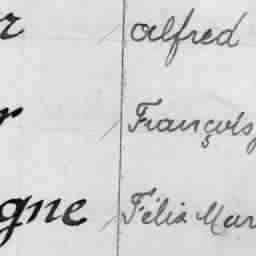 r alfred
r François
gne Félix Mar